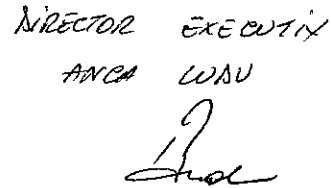 DIRECTOR EXECUTIV
ANCA